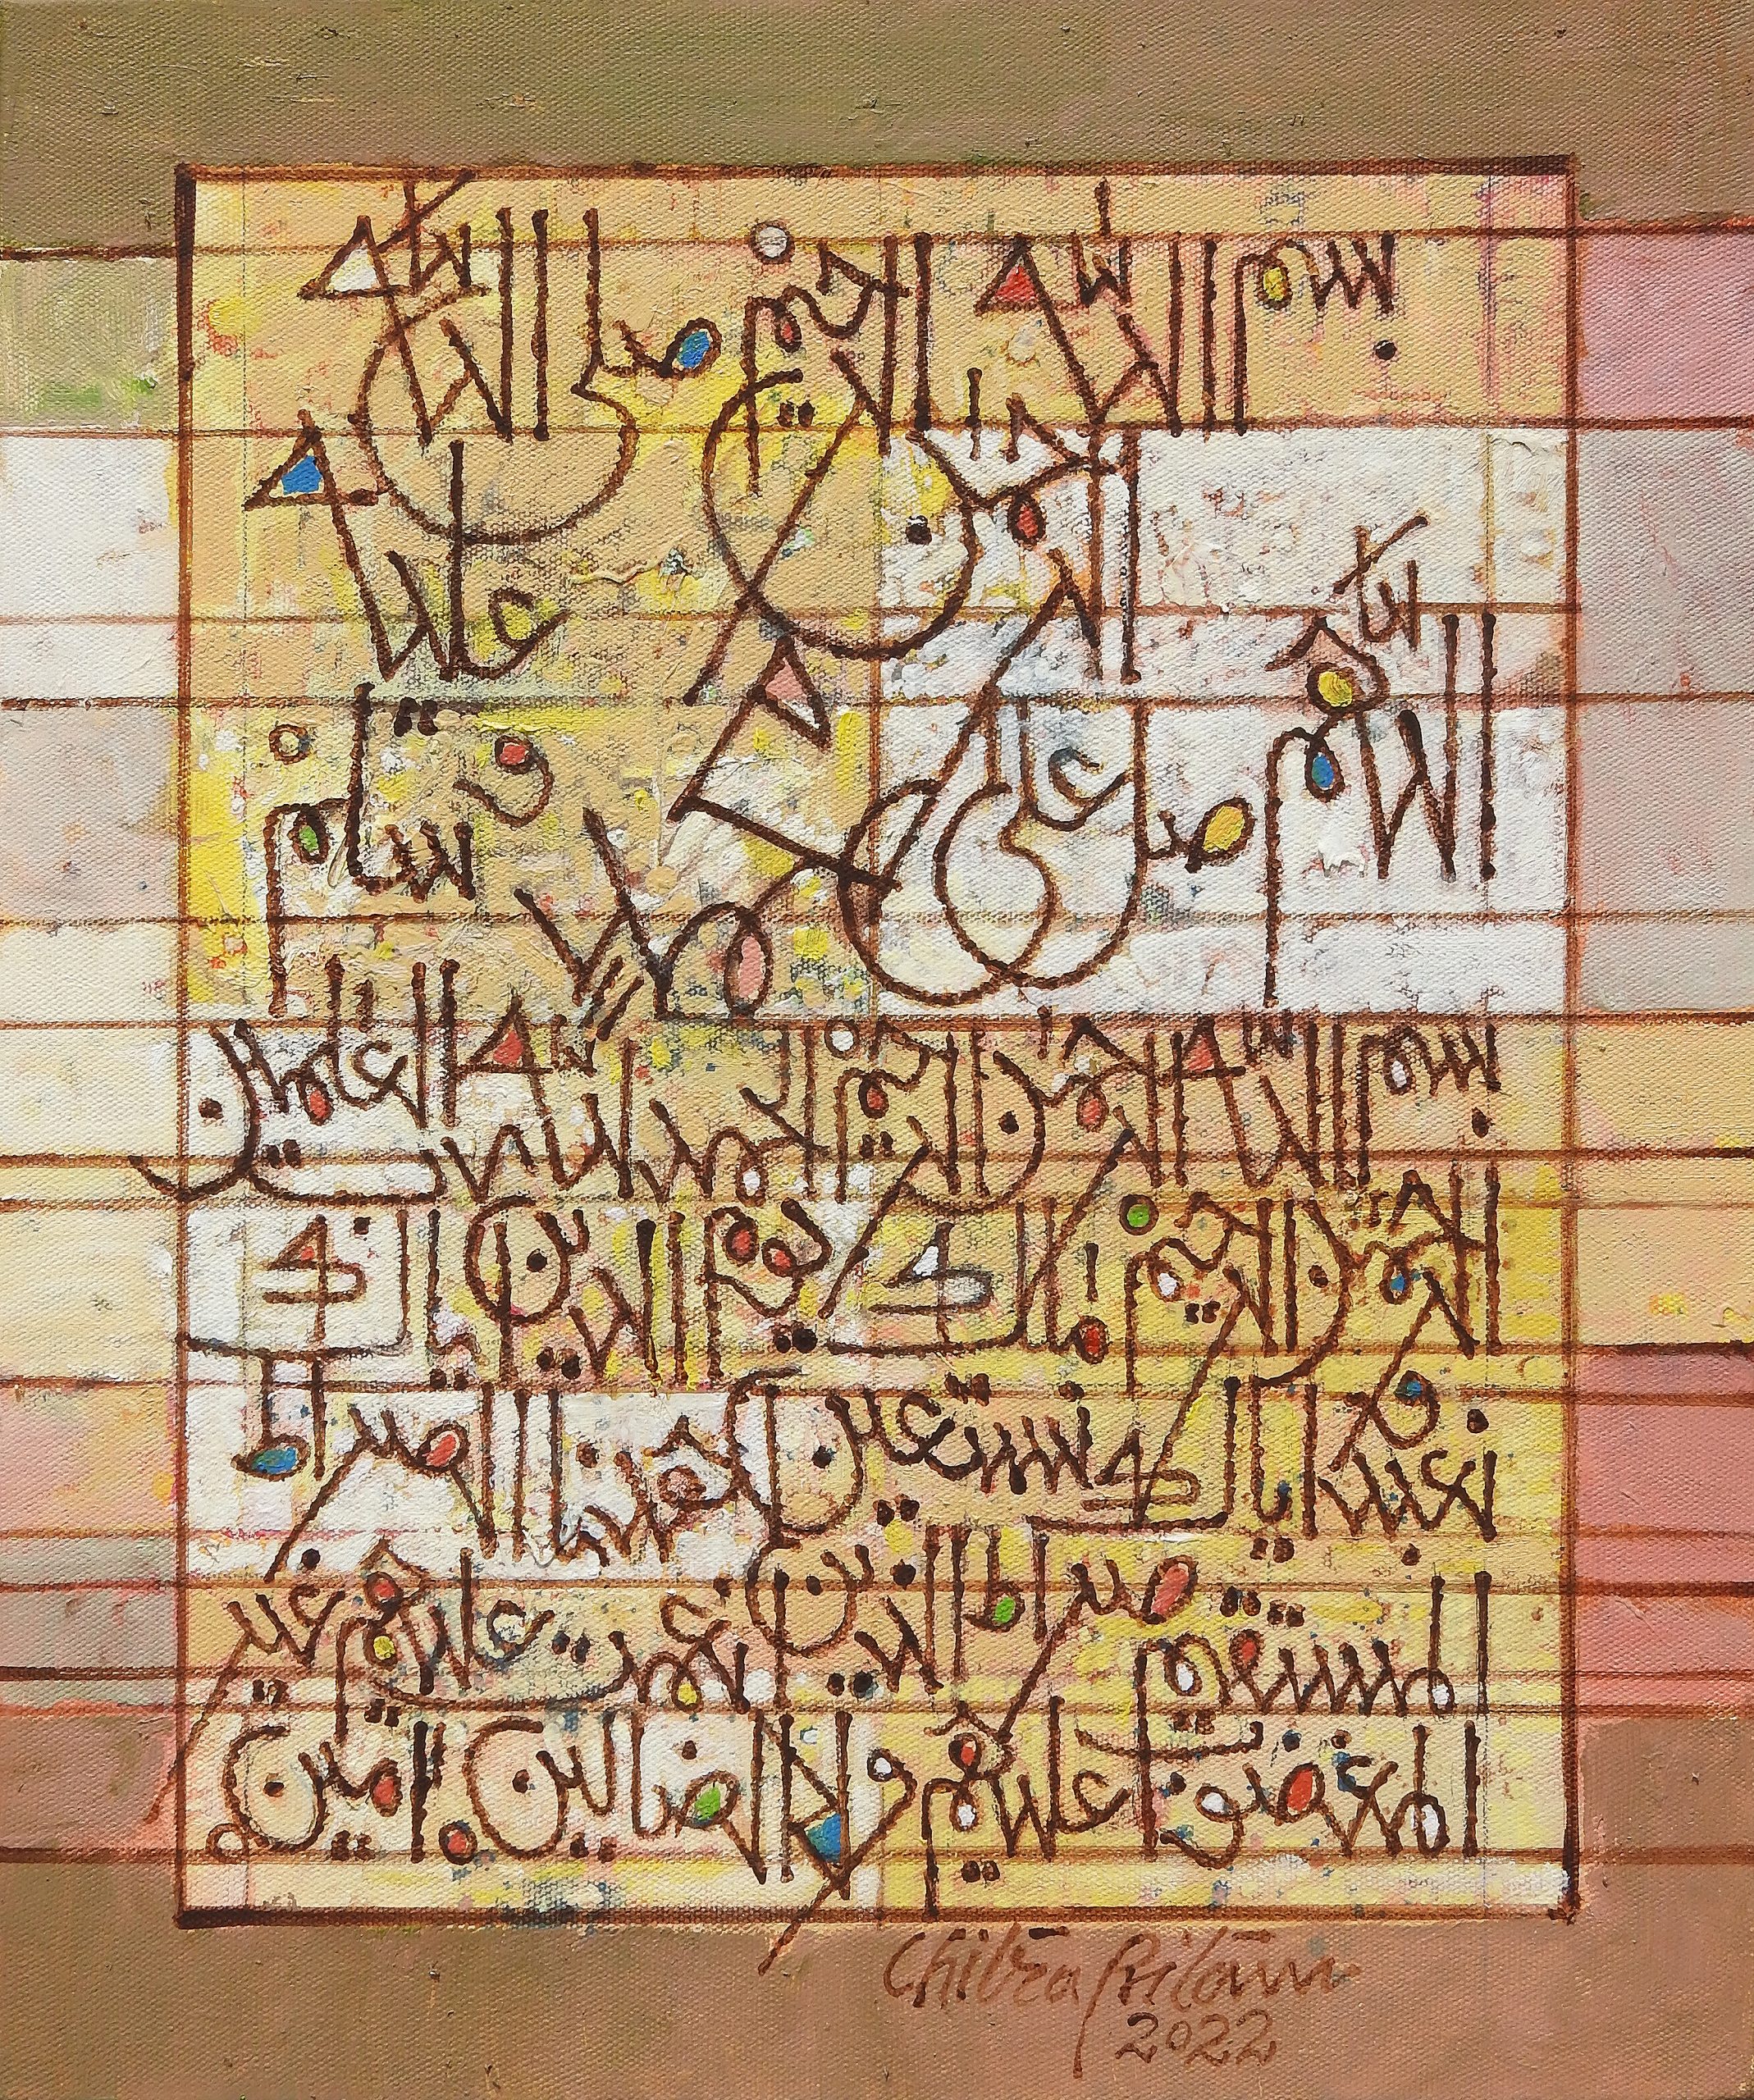 بسم الله الرحمن الرحيم صلى الله
عليه
اللهم صل على محمد وسلم
بسم الله الرحمن الرحيم الحمد لله العلمين
الرحمن الرحيم ملك يوم الدين اياك
نعبد واياك نستعين اهدنا الصراط
المستقيم صراط الذين انعمت عليهم غير
المغضوب عليهم ولا الضالين امين
Chitra Pritam
2022